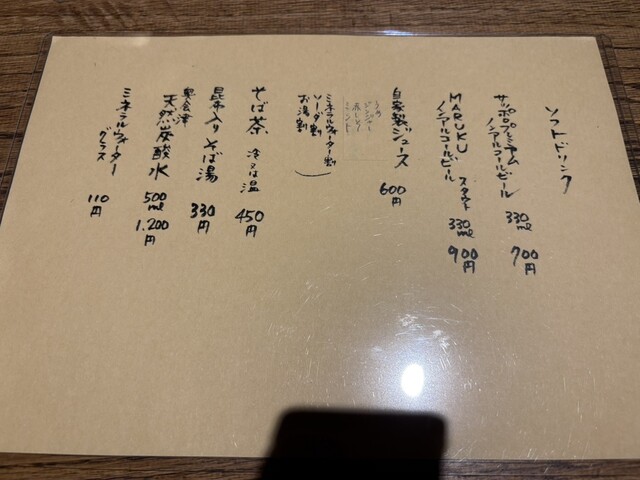 ソフトドリンク
サッポロプレミアム
ノンアルコールビール 330ml 700円
MARUKU スタウト
ノンアルコールビール 330ml 900円
自家製ジュース 600円
うめ
ジンジャー
赤しそ
ミント
ミネラルウォーター割
ソーダ割
お湯割
そば茶 冷又は温 450円
昆布入りそば湯 330円
奥会津
天然炭酸水 500ml 1.200円
ミネラルウォーター
グラス 110円